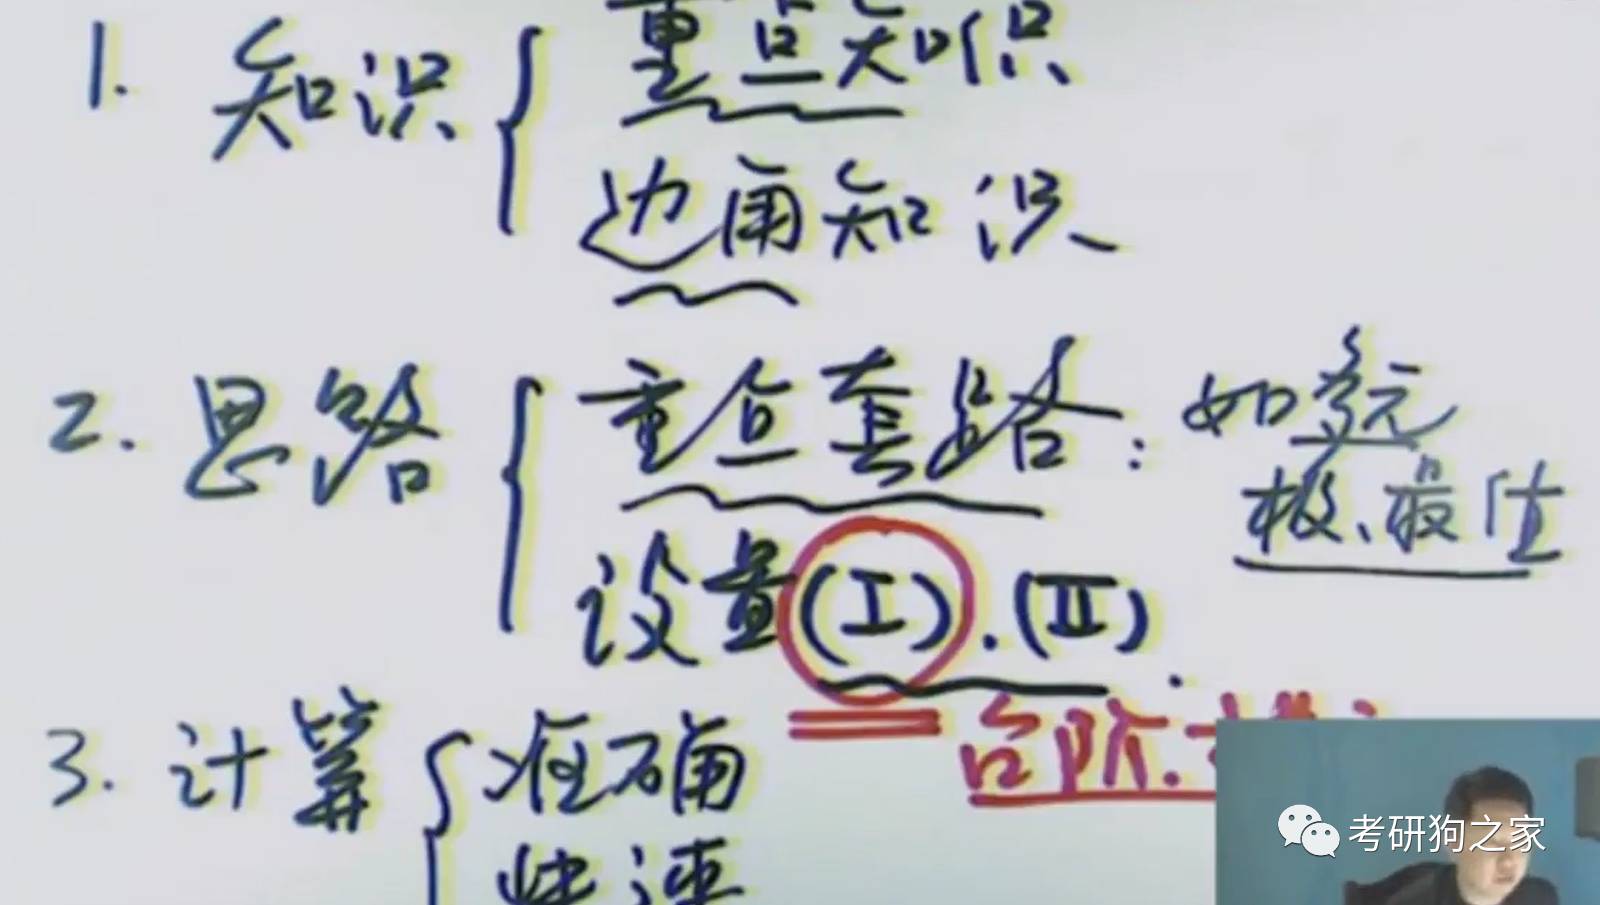 1. 知识 { 重点知识
边角知识
2. 思路 { 重点套路: 如多元
极、最值
设置(I).(II).
台阶.
3. 计算 { 准确
快速
考研狗之家